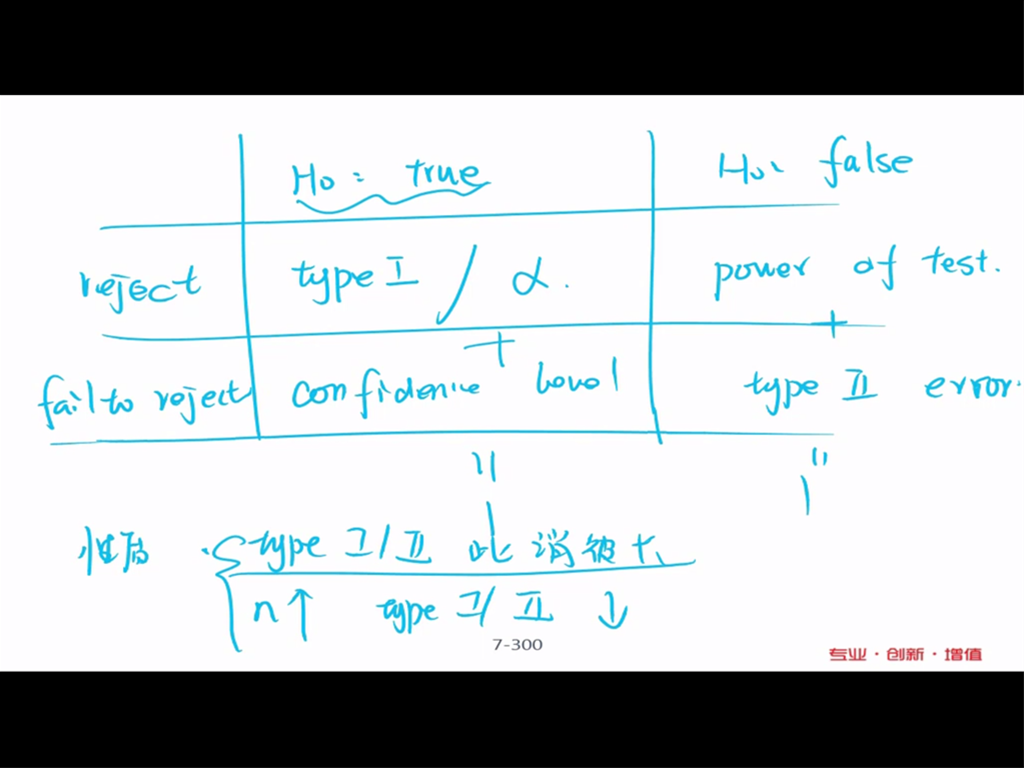 H₀: true H₀: false
reject type I / α. power of test.
+ +
fail to reject confidence level type II error.
" "
1 1
性质 { type I/II 此消彼长
n↑ type I/II ↓
7-300
专业·创新·增值